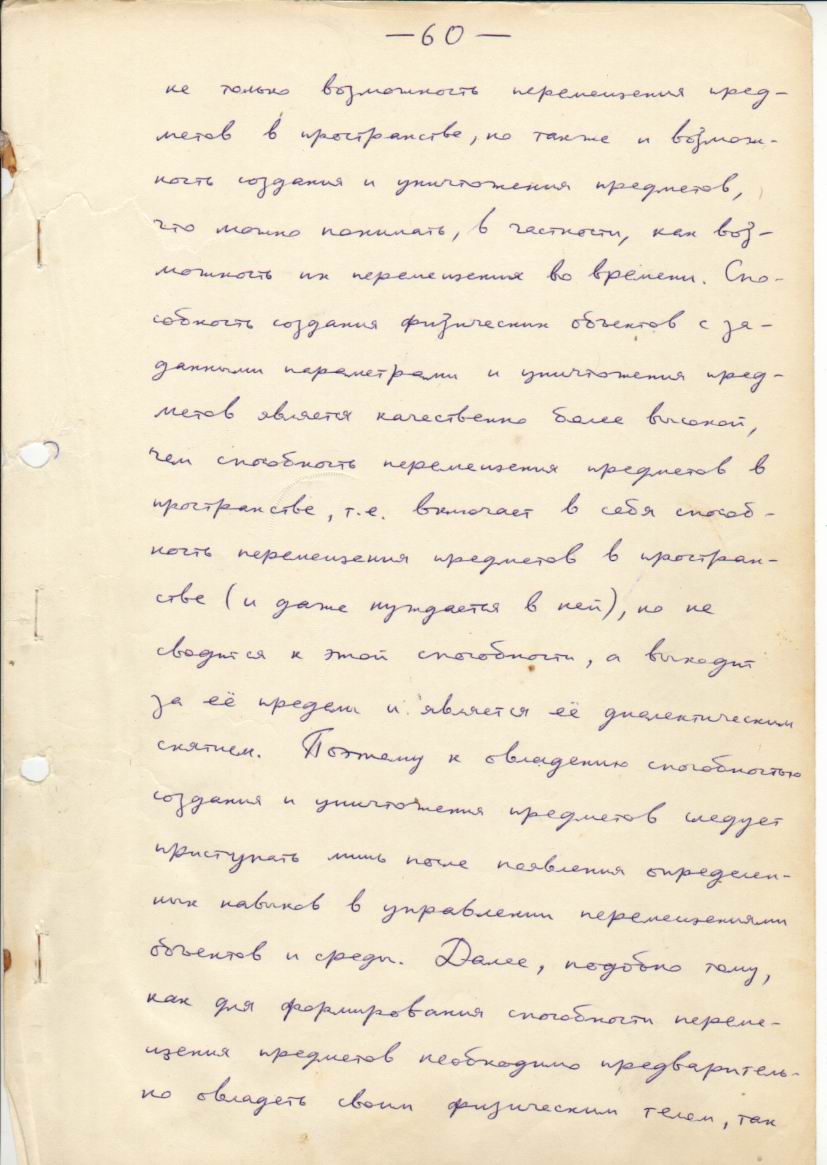 —60—
не только возможность перемещения пред-
метов в пространстве, но также и возмож-
ность создания и уничтожения предметов,
что можно понимать, в частности, как воз-
можность их перемещения во времени. Спо-
собность создания физических объектов с за-
данными параметрами и уничтожения пред-
метов является качественно более высокой,
чем способность перемещения предметов в
пространстве, т.е. включает в себя способ-
ность перемещения предметов в простран-
стве (и даже нуждается в ней), но не
сводится к этой способности, а выходит
за её пределы и является её диалектическим
снятием. Поэтому к овладению способностью
создания и уничтожения предметов следует
приступать лишь после появления определен-
ных навыков в управлении перемещениями
объектов и среды. Далее, подобно тому,
как для формирования способности переме-
щения предметов необходимо предваритель-
но овладеть своим физическим телом, так